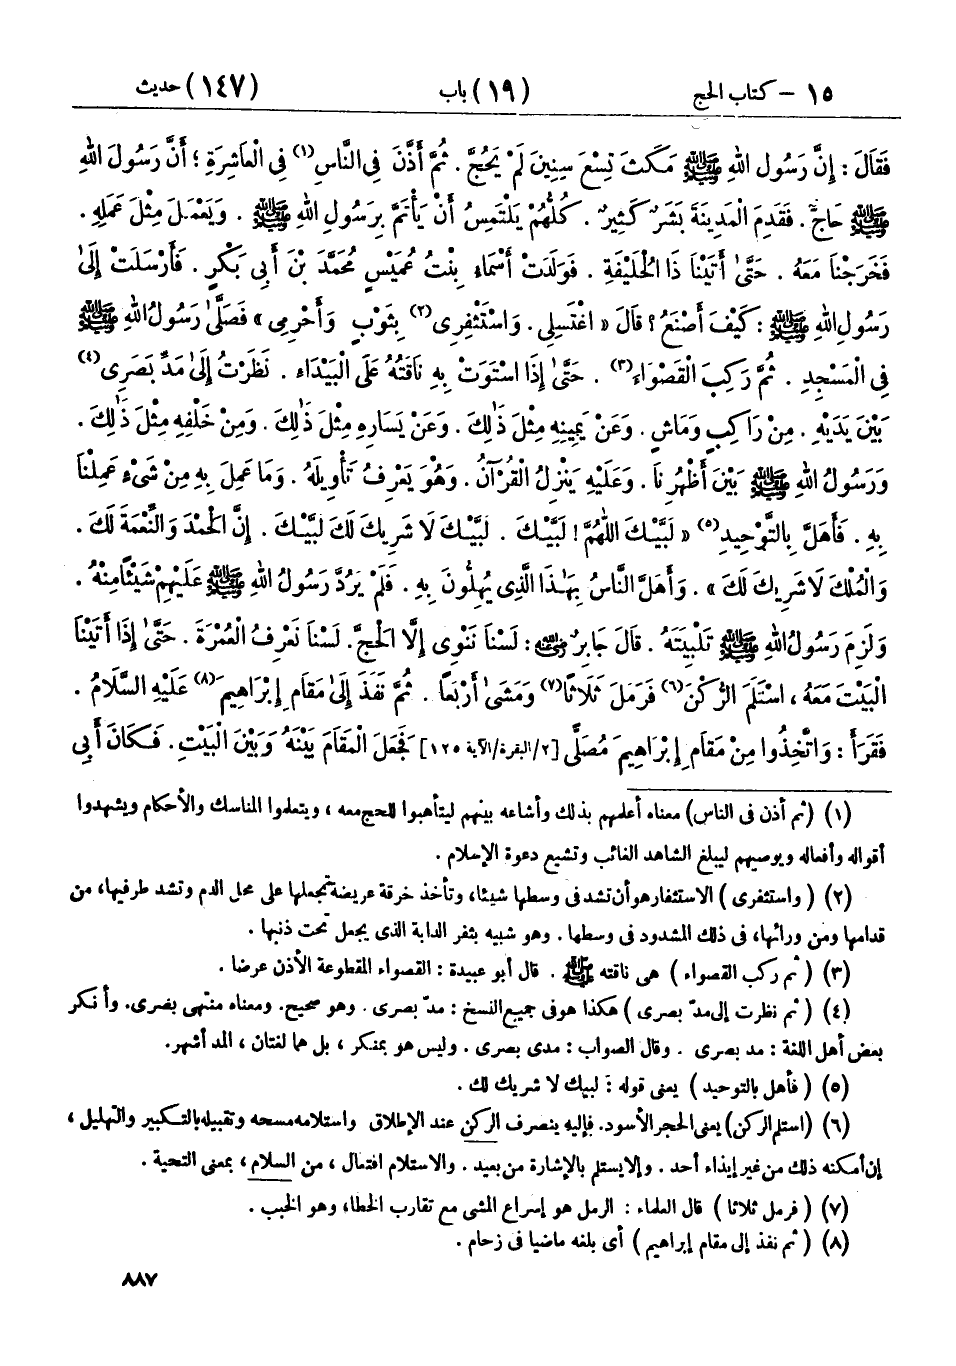 ١٥ - كتاب الحج (١٩) باب (١٤٧) حديث
فَقَالَ : إِنَّ رَسُولَ اللهِ ﷺ مَكَثَ تِسْعَ سِنِينَ لَمْ يَحُجَّ . ثُمَّ أَذَّنَ فِي النَّاسِ(١) فِي الْعَاشِرَةِ ؛ أَنَّ رَسُولَ اللهِ
ﷺ حَاجٌّ . فَقَدِمَ الْمَدِينَةَ بَشَرٌ كَثِيرٌ . كُلُّهُمْ يَلْتَمِسُ أَنْ يَأْتَمَّ بِرَسُولِ اللهِ ﷺ . وَيَعْمَلَ مِثْلَ عَمَلِهِ .
فَخَرَجْنَا مَعَهُ . حَتَّىٰ أَتَيْنَا ذَا الْحُلَيْفَةِ . فَوَلَدَتْ أَسْمَاءُ بِنْتُ عُمَيْسٍ مُحَمَّدَ بْنَ أَبِي بَكْرٍ . فَأَرْسَلَتْ إِلَىٰ
رَسُولِ اللهِ ﷺ : كَيْفَ أَصْنَعُ ؟ قَالَ « اغْتَسِلِي . وَاسْتَثْفِرِي(٢) بِثَوْبٍ وَأَحْرِمِي » فَصَلَّىٰ رَسُولُ اللهِ ﷺ
فِي الْمَسْجِدِ . ثُمَّ رَكِبَ الْقَصْوَاءَ(٣) . حَتَّىٰ إِذَا اسْتَوَتْ بِهِ نَاقَتُهُ عَلَى الْبَيْدَاءِ . نَظَرْتُ إِلَىٰ مَدِّ بَصَرِي(٤)
بَيْنَ يَدَيْهِ . مِنْ رَاكِبٍ وَمَاشٍ . وَعَنْ يَمِينِهِ مِثْلَ ذَٰلِكَ . وَعَنْ يَسَارِهِ مِثْلَ ذَٰلِكَ . وَمِنْ خَلْفِهِ مِثْلَ ذَٰلِكَ .
وَرَسُولُ اللهِ ﷺ بَيْنَ أَظْهُرِنَا . وَعَلَيْهِ يَنْزِلُ الْقُرْآنُ . وَهُوَ يَعْرِفُ تَأْوِيلَهُ . وَمَا عَمِلَ بِهِ مِنْ شَيْءٍ عَمِلْنَا
بِهِ . فَأَهَلَّ بِالتَّوْحِيدِ(٥) « لَبَّيْكَ اللّٰهُمَّ ! لَبَّيْكَ . لَبَّيْكَ لَا شَرِيكَ لَكَ لَبَّيْكَ . إِنَّ الْحَمْدَ وَالنِّعْمَةَ لَكَ .
وَالْمُلْكَ لَا شَرِيكَ لَكَ » . وَأَهَلَّ النَّاسُ بِهَٰذَا الَّذِي يُهِلُّونَ بِهِ . فَلَمْ يَرُدَّ رَسُولُ اللهِ ﷺ عَلَيْهِمْ شَيْئًا مِنْهُ .
وَلَزِمَ رَسُولُ اللهِ ﷺ تَلْبِيَتَهُ . قَالَ جَابِرٌ رضي الله عنه : لَسْنَا نَنْوِي إِلَّا الْحَجَّ . لَسْنَا نَعْرِفُ الْعُمْرَةَ . حَتَّىٰ إِذَا أَتَيْنَا
الْبَيْتَ مَعَهُ ، اسْتَلَمَ الرُّكْنَ(٦) فَرَمَلَ ثَلَاثًا(٧) وَمَشَىٰ أَرْبَعًا . ثُمَّ نَفَذَ إِلَىٰ مَقَامِ إِبْرَاهِيمَ(٨) عَلَيْهِ السَّلَامُ .
فَقَرَأَ : وَاتَّخِذُوا مِنْ مَقَامِ إِبْرَاهِيمَ مُصَلًّى [٢/البقرة/الآية ١٢٥] فَجَعَلَ الْمَقَامَ بَيْنَهُ وَبَيْنَ الْبَيْتِ . فَكَانَ أَبِي
(١) (ثم أذن فى الناس) معناه أعلمهم بذلك وأشاعه بينهم ليتأهبوا للحج معه ، ويتعلموا المناسك والأحكام ويشهدوا
أقواله وأفعاله ويوصيهم ليبلغ الشاهد الغائب وتشيع دعوة الإسلام .
(٢) ( واستثفرى ) الاستثفار هو أن تشد فى وسطها شيئا، وتأخذ خرقة عريضة تجعلها على محل الدم وتشد طرفيها، من
قدامها ومن ورائها، فى ذلك المشدود فى وسطها . وهو شبيه بثفر الدابة الذى يجعل تحت ذنبها .
(٣) ( ثم ركب القصواء ) هى ناقته ﷺ . قال أبو عبيدة : القصواء المقطوعة الأذن عرضا .
(٤) ( ثم نظرت إلى مدّ بصرى ) هكذا هو فى جميع النسخ : مدّ بصرى . وهو صحيح. ومعناه منتهى بصرى. وأنكر
بعض أهل اللغة : مد بصرى . وقال الصواب : مدى بصرى . وليس هو بمنكر ، بل هما لغتان ، المد أشهر.
(٥) ( فأهل بالتوحيد ) يعنى قوله : لبيك لا شريك لك .
(٦) (استلم الركن) يعنى الحجر الأسود. فإليه ينصرف الركن عند الإطلاق واستلامه مسحه وتقبيله بالتكبير والتهليل ،
إن أمكنه ذلك من غير إيذاء أحد . وإلا يستلم بالإشارة من بعيد . والاستلام افتعال ، من السلام ، بمعنى التحية .
(٧) ( فرمل ثلاثا ) قال العلماء : الرمل هو إسراع المشى مع تقارب الخطا، وهو الخبب .
(٨) ( ثم نفذ إلى مقام إبراهيم ) أى بلغه ماضيا فى زحام .
٨٨٧